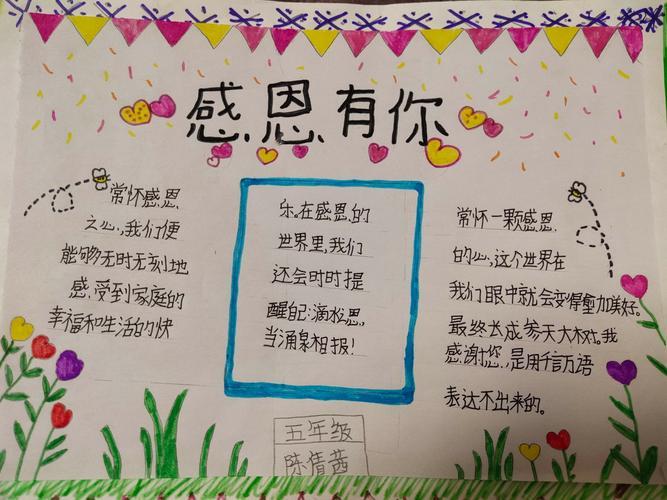 感恩有你
常怀感恩
之心,我们便
能够无时无刻地
感受到家庭的
幸福和生活的快
乐。在感恩的
世界里,我们
还会时时提
醒自己:滴水恩,
当涌泉相报!
常怀一颗感恩
的心,这个世界在
我们眼中就会变得愈加美好。
最终长成参天大树。我
感谢您,是用千言万语
表达不出来的。
五年级
陈倩茜